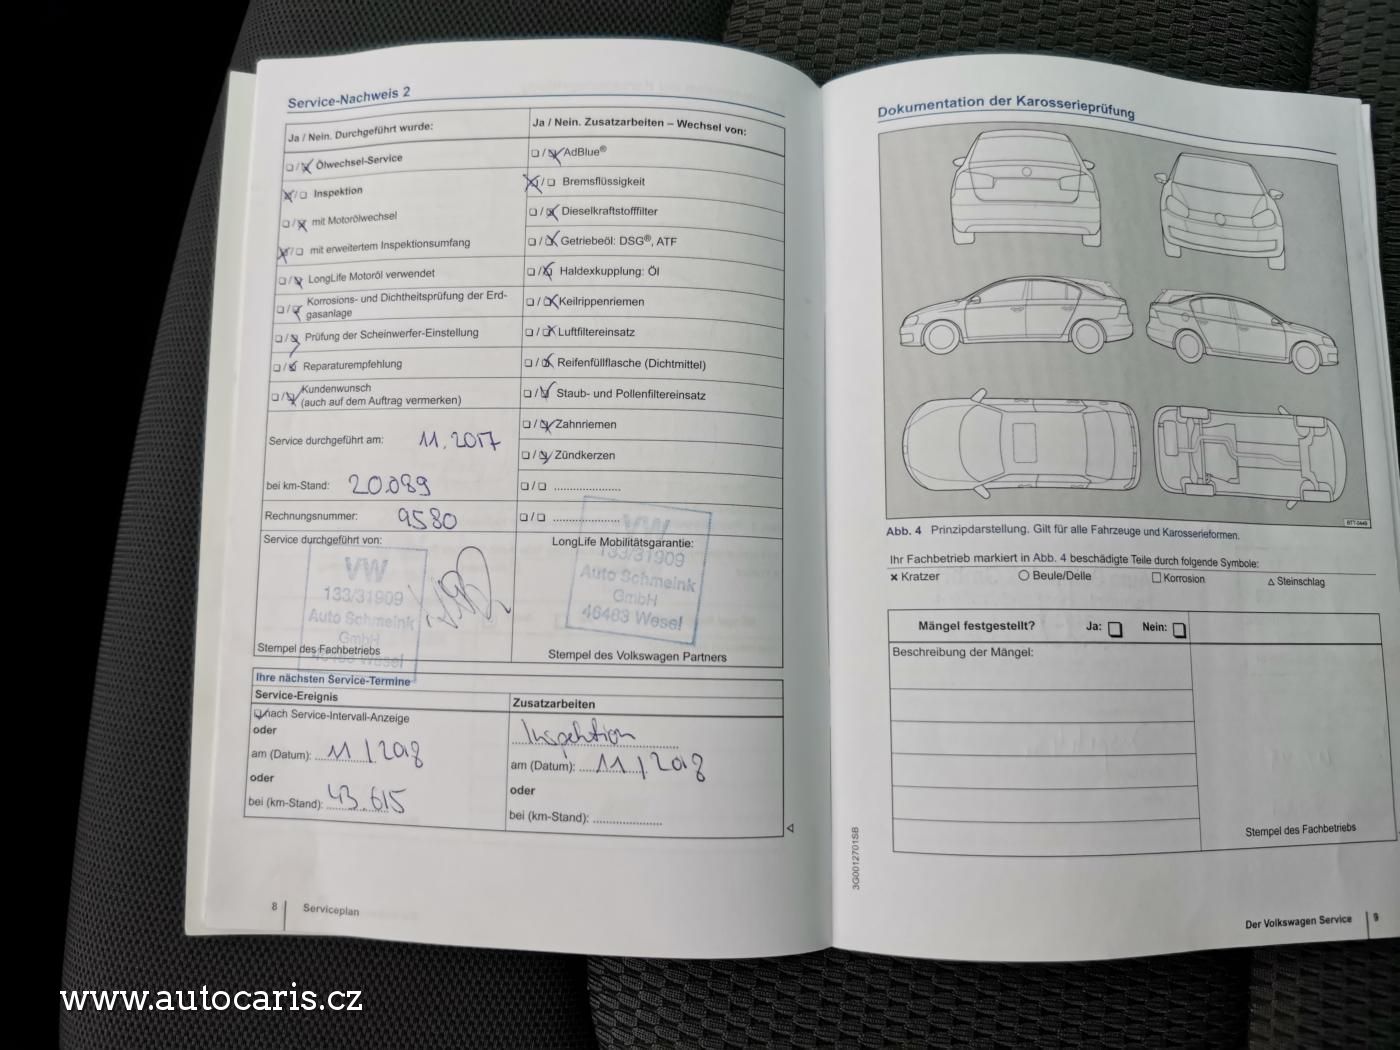 Service-Nachweis 2
Ja / Nein. Durchgeführt wurde:
☐/☒ Ölwechsel-Service
☒/☐ Inspektion
☐/☒ mit Motorölwechsel
☒/☐ mit erweitertem Inspektionsumfang
☐/☒ LongLife Motoröl verwendet
☐/☒ Korrosions- und Dichtheitsprüfung der Erd-
gasanlage
☐/☒ Prüfung der Scheinwerfer-Einstellung
☐/☒ Reparaturempfehlung
☐/☒ Kundenwunsch
(auch auf dem Auftrag vermerken)
Service durchgeführt am: 11.2017
bei km-Stand: 20.089
Rechnungsnummer: 9580
Service durchgeführt von:
VW
133/31909
Auto Schmeink
GmbH
46483 Wesel
Stempel des Fachbetriebs
Ja / Nein. Zusatzarbeiten – Wechsel von:
☐/☒ AdBlue®
☒/☐ Bremsflüssigkeit
☐/☒ Dieselkraftstofffilter
☐/☒ Getriebeöl: DSG®, ATF
☐/☒ Haldexkupplung: Öl
☐/☒ Keilrippenriemen
☐/☒ Luftfiltereinsatz
☐/☒ Reifenfüllflasche (Dichtmittel)
☐/☒ Staub- und Pollenfiltereinsatz
☐/☒ Zahnriemen
☐/☒ Zündkerzen
☐/☐ ....................
☐/☐ ....................
LongLife Mobilitätsgarantie:
VW
133/31909
Auto Schmeink
GmbH
46483 Wesel
Stempel des Volkswagen Partners
Ihre nächsten Service-Termine
Service-Ereignis
☒ nach Service-Intervall-Anzeige
oder
am (Datum): 11/2018
oder
bei (km-Stand): 43.615
Zusatzarbeiten
Inspektion
am (Datum): 11/2018
oder
bei (km-Stand): ....................
8 Serviceplan
Dokumentation der Karosserieprüfung
BTT-0449
Abb. 4 Prinzipdarstellung. Gilt für alle Fahrzeuge und Karosserieformen.
Ihr Fachbetrieb markiert in Abb. 4 beschädigte Teile durch folgende Symbole:
× Kratzer ○ Beule/Delle □ Korrosion △ Steinschlag
Mängel festgestellt? Ja: ☐ Nein: ☐
Beschreibung der Mängel:
Stempel des Fachbetriebs
3G0012701SB
Der Volkswagen Service 9
www.autocaris.cz